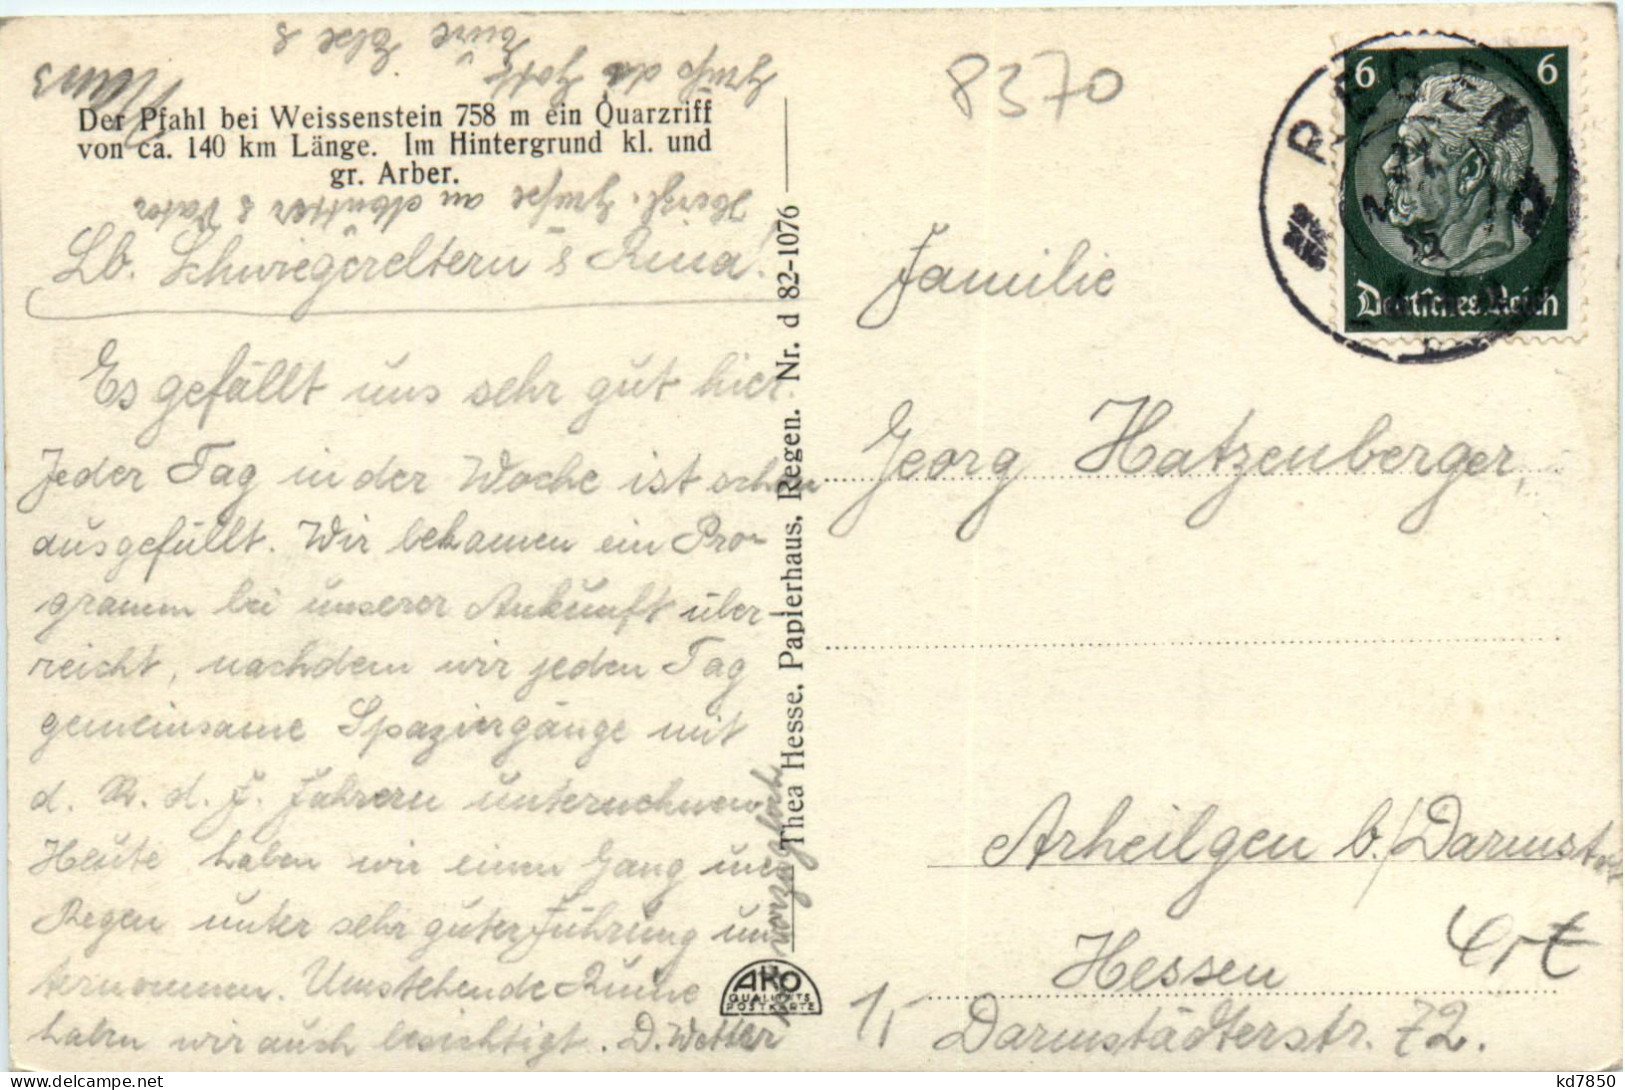 Der Pfahl bei Weissenstein 758 m ein Quarzriff
von ca. 140 km Länge. Im Hintergrund kl. und
gr. Arber.
Lb. Schwiegereltern & Rina!
Es gefällt uns sehr gut hier.
Jeder Tag in der Woche ist schon
ausgefüllt. Wir bekamen ein Pro-
gramm bei unserer Ankunft über-
reicht, nachdem wir jeden Tag
gemeinsame Spaziergänge mit
d. K. d. F. Fahrern unternehmen.
Heute haben wir einen Gang um
Regen unter sehr guter Führung un-
ternommen. Umstehende Ruine
haben wir auch besichtigt. D. Wetter
ist vorzüglich
Herzl. Grüße an Mutter & Vater
Grüß
Eure Else &
Hans
Thea Hesse, Papierhaus, Regen. Nr. d 82-1076
AKO
QUALITÄTS
POSTKARTE
8370
REGEN
6 6
Deutsches Reich
Familie
Georg Hatzenberger,
Arheilgen b/Darmstadt
Hessen
Darmstädterstr. 72.